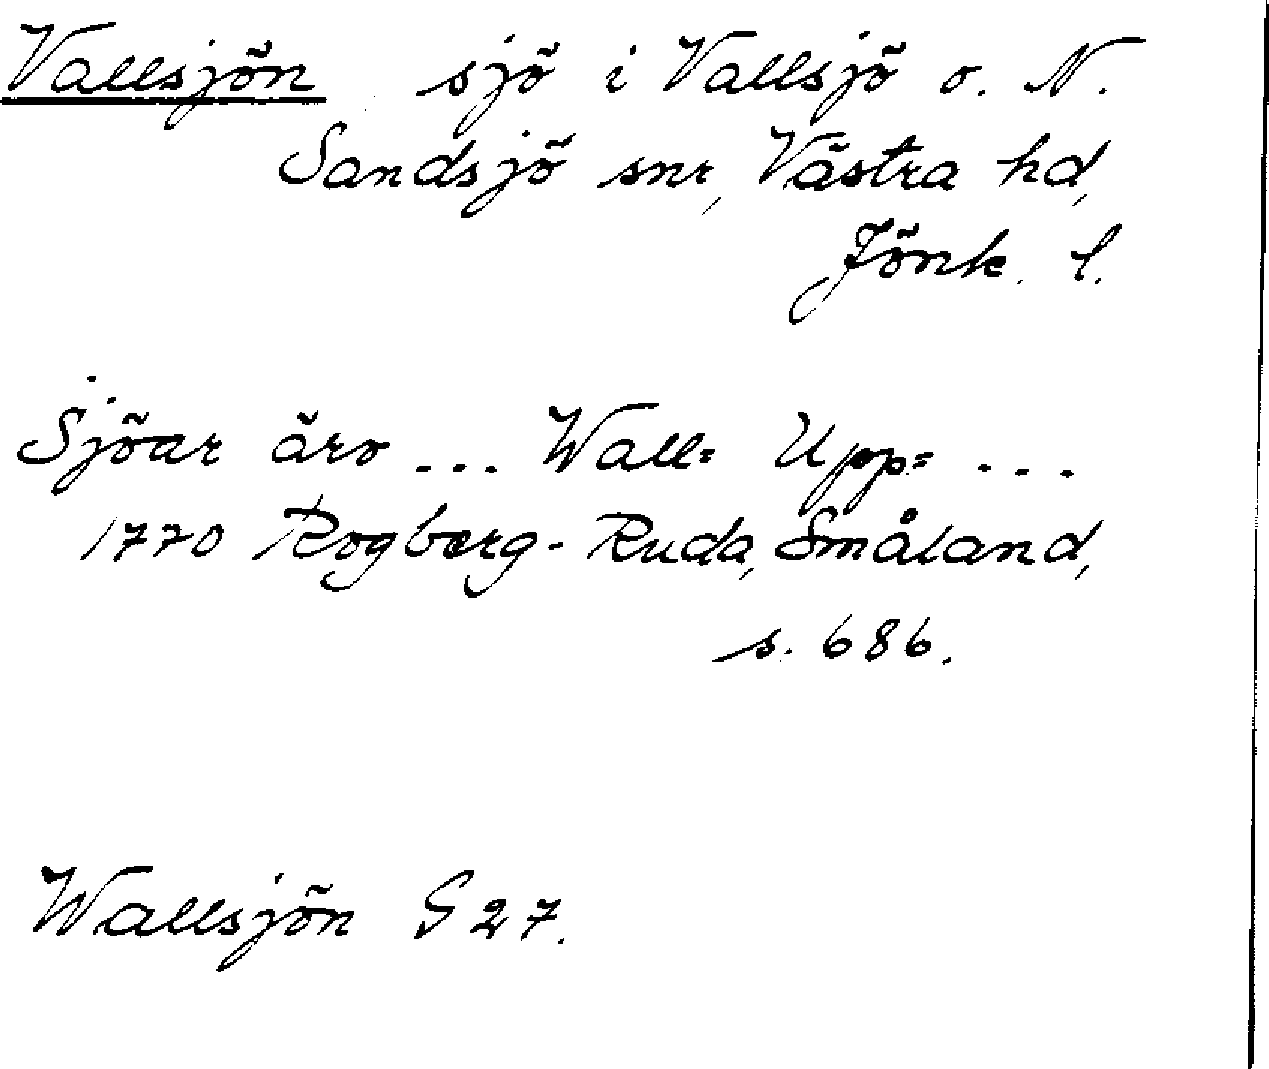 Vallsjön sjö i Vallsjö o. N.
Sandsjö snr, Västra hd,
Jönk. l.
Sjöar äro ... Wall= Upp= ...
1770 Rogberg-Ruda, Småland,
s. 686.
Wallsjön G 27.